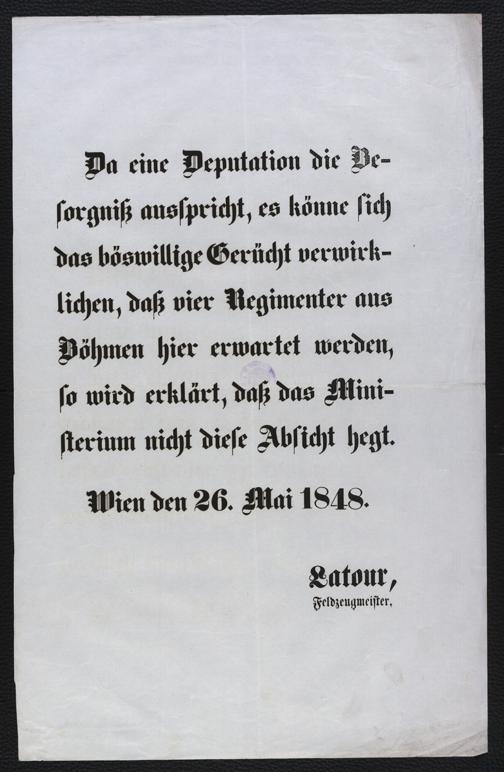 Da eine Deputation die Be-
sorgniß ausspricht, es könne sich
das böswillige Gerücht verwirk-
lichen, daß vier Regimenter aus
Böhmen hier erwartet werden,
so wird erklärt, daß das Mini-
sterium nicht diese Absicht hegt.
Wien den 26. Mai 1848.
Latour,
Feldzeugmeister.